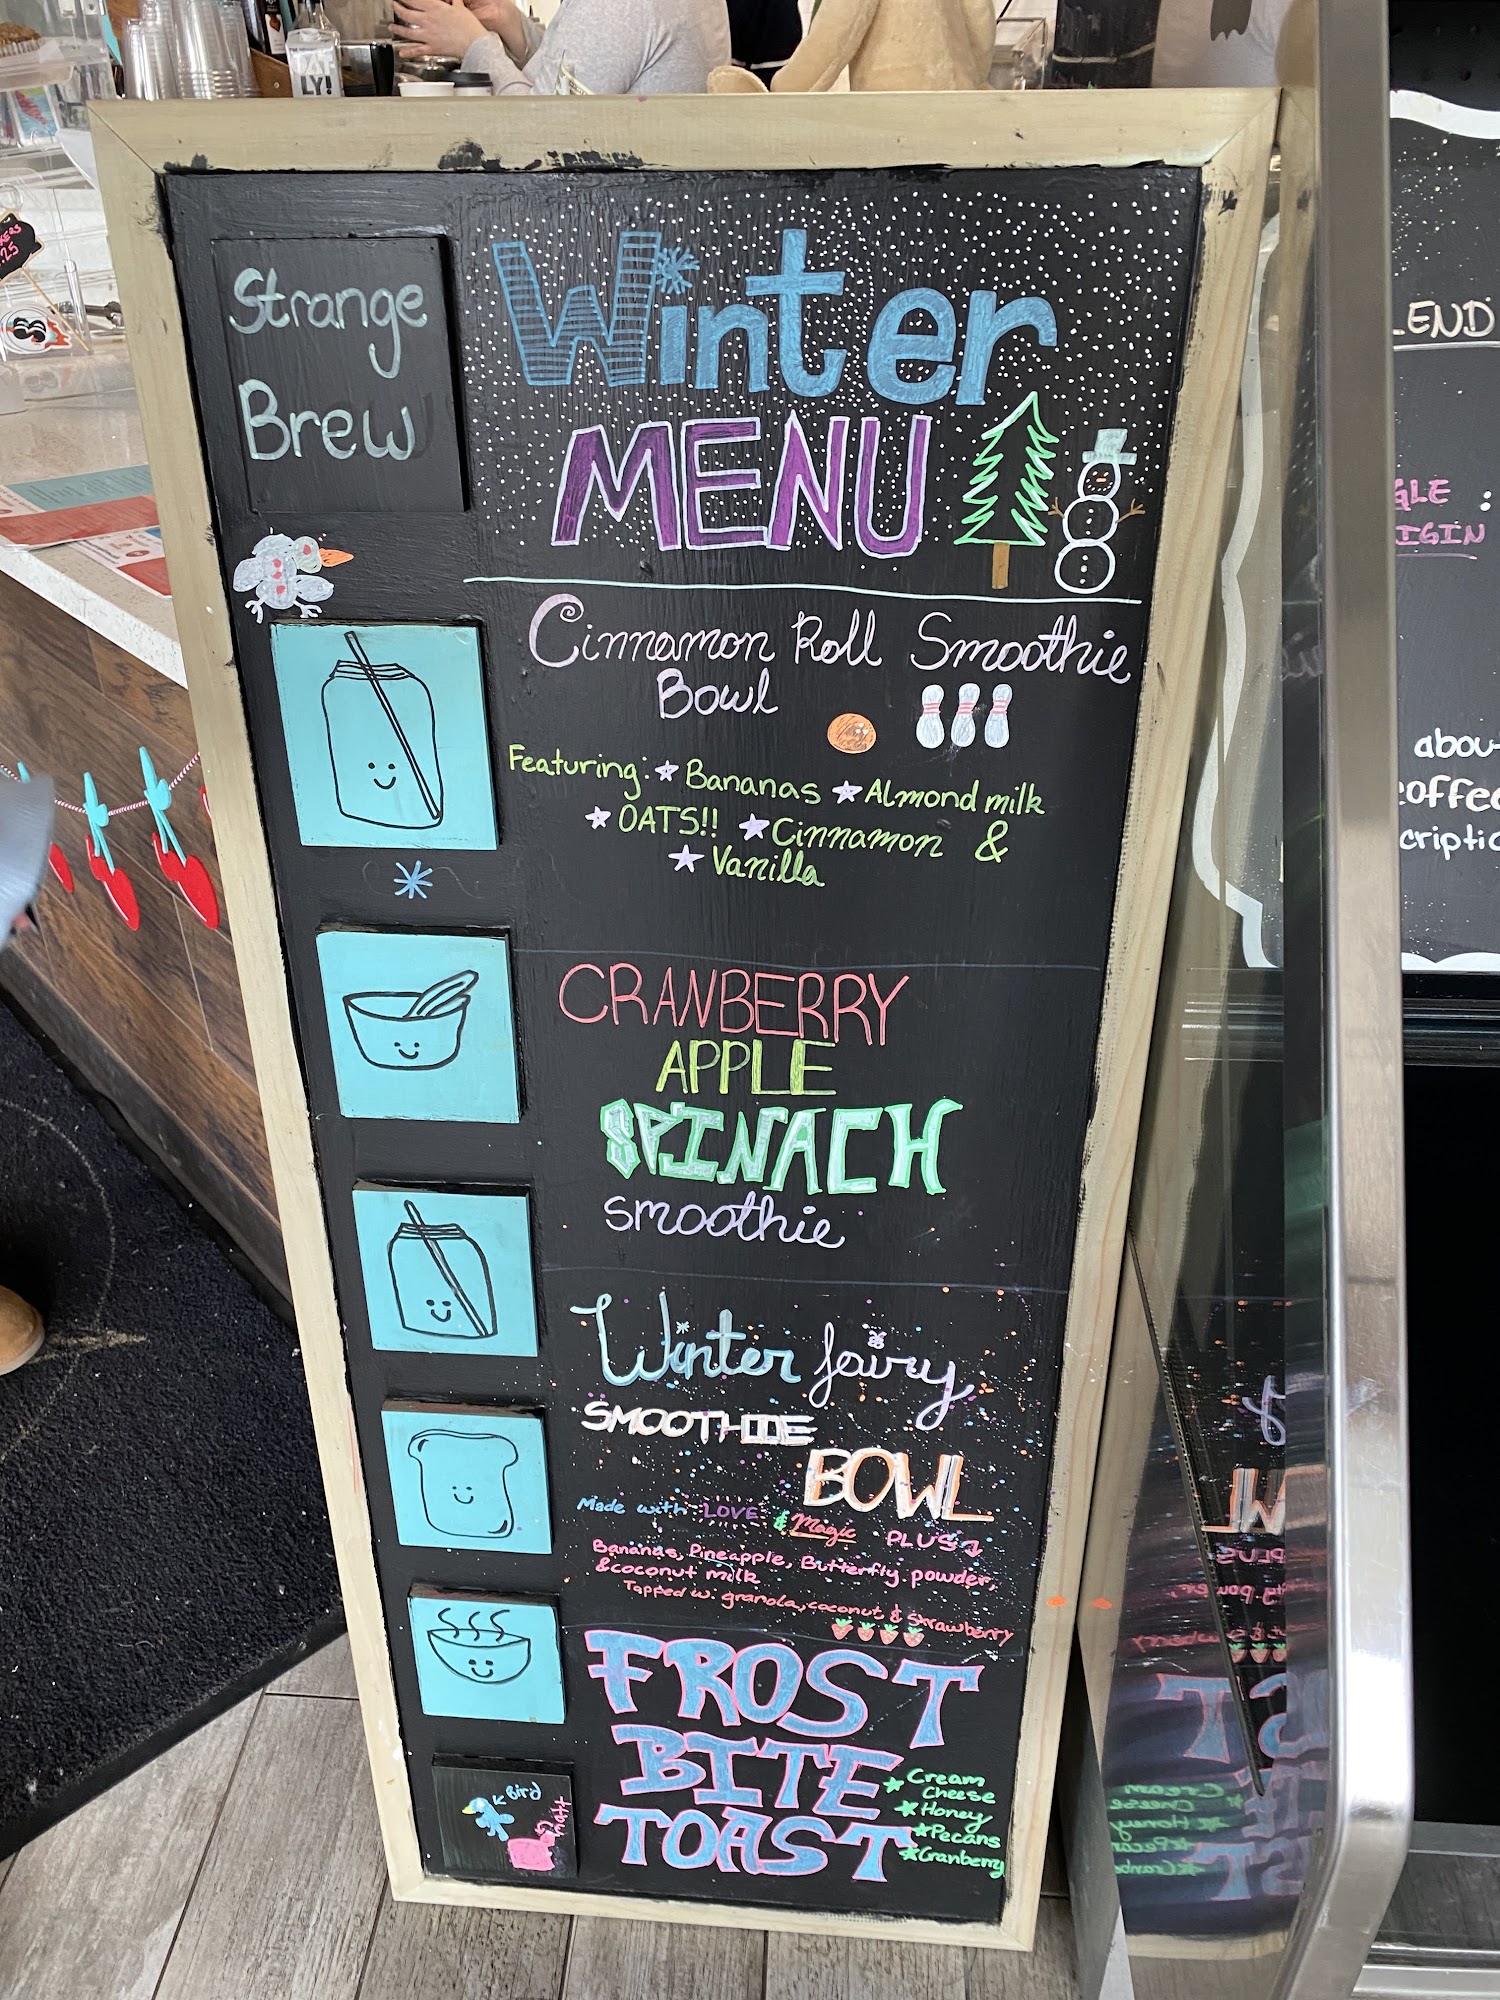 Strange
Brew
Winter
MENU
Cinnamon Roll Smoothie
Bowl
Featuring: Bananas Almond milk
OATS!! Cinnamon &
Vanilla
CRANBERRY
APPLE
SPINACH
smoothie
Winter fairy
SMOOTHIE
BOWL
Made with LOVE & Magic PLUS
Bananas, Pineapple, Butterfly powder,
& coconut milk
Topped w. granola, coconut & strawberry
FROST
BITE
TOAST
Cream
Cheese
Honey
Pecans
Cranberry
Bird
LY!
LEND
GLE :
IGIN
abou
offee
criptio